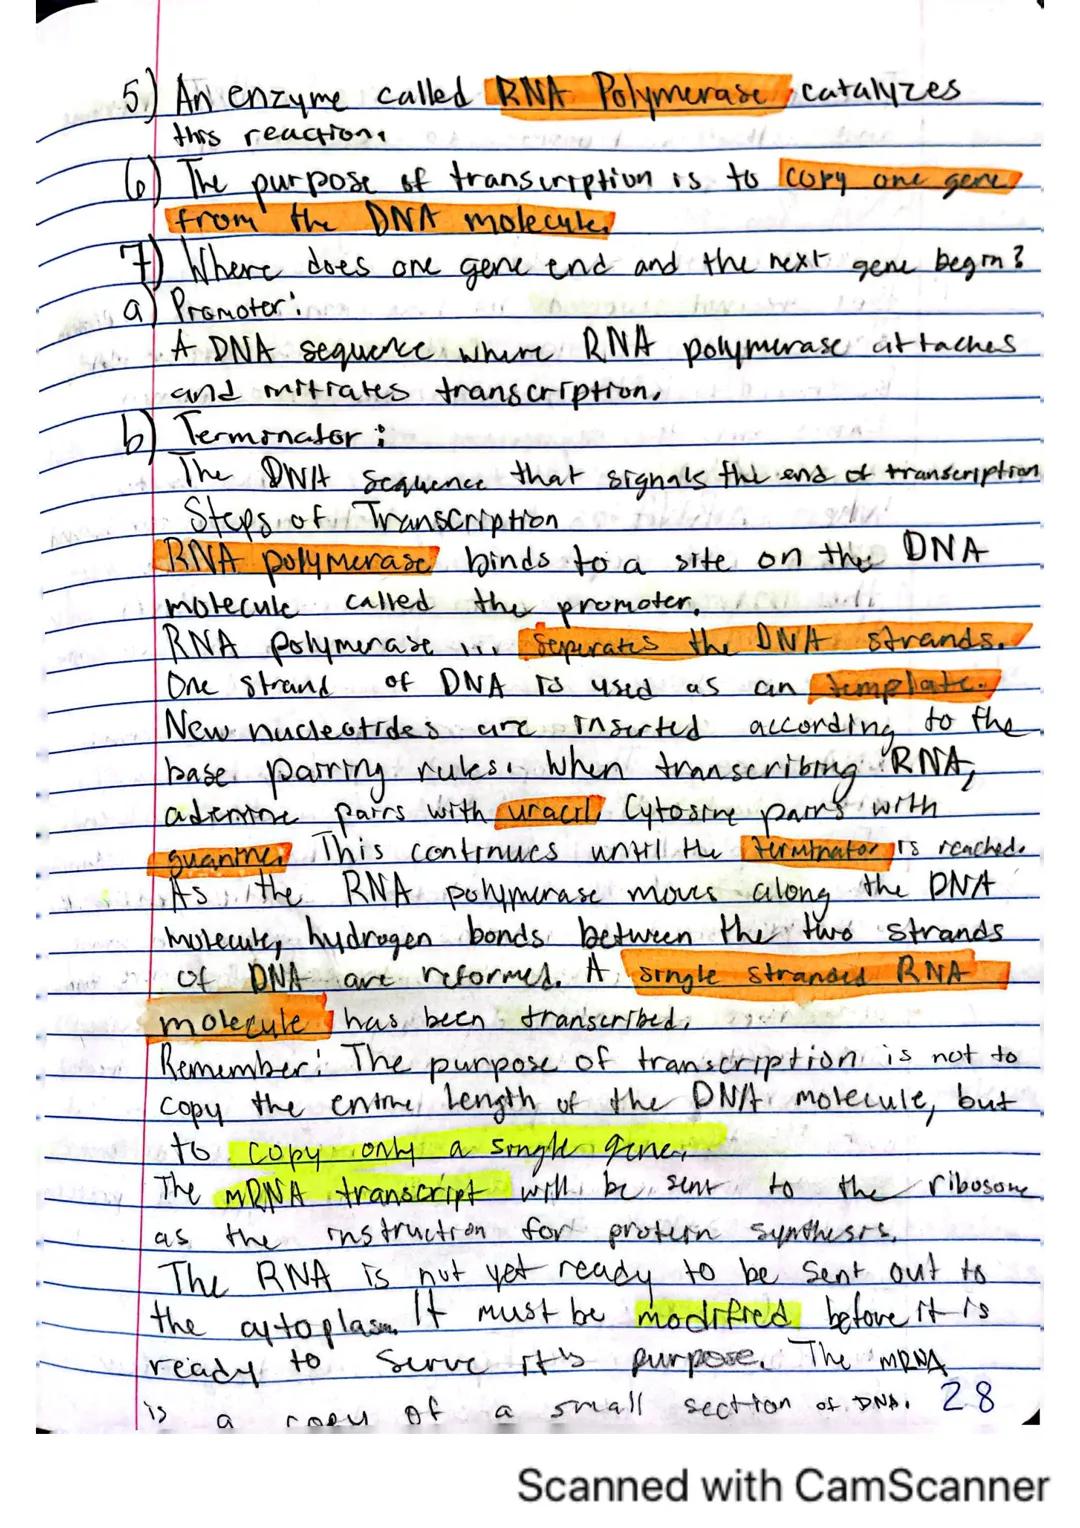 5.) An enzyme called RNA Polymerase catalyzes
this reaction.
6) The purpose of transcription is to copy one gene
from the DNA molecule.
7) Where does one gene end and the next gene begin?
a) Promoter:
A DNA sequence where RNA polymerase attaches
and initiates transcription.
b) Terminator:
The DNA sequence that signals the end of transcription
Steps of Transcription
RNA polymerase binds to a site on the DNA
molecule called the promoter.
RNA polymerase ... seperates the DNA strands.
One strand of DNA is used as an template.
New nucleotides are inserted according to the
base pairing rules. When transcribing RNA,
adenine pairs with uracil. Cytosine pairs with
guanine. This continues until the terminator is reached.
As the RNA polymerase moves along the DNA
molecule, hydrogen bonds between the two strands
of DNA are reformed. A single stranded RNA
molecule has been transcribed.
Remember: The purpose of transcription is not to
copy the entire length of the DNA molecule, but
to copy only a single gene.
The mRNA transcript will be sent to the ribosome
as the instruction for protein synthesis.
The RNA is not yet ready to be sent out to
the cytoplasm. It must be modified before it is
ready to serve it's purpose. The mRNA
is a copy of a small section of DNA. 28
Scanned with CamScanner